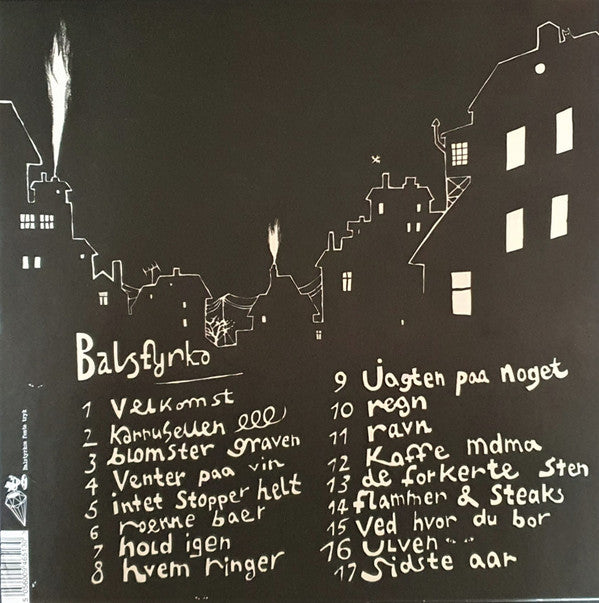 Balstyrko
1 Velkomst
2 Karrusellen
3 blomster graven
4 Venter paa vin
5 intet stopper helt
6 roenne baer
7 hold igen
8 hvem ringer
9 Jagten paa noget
10 regn
11 ravn
12 Kaffe mdma
13 de forkerte sten
14 flammen & steaks
15 Ved hvor du bor
16 Ulven
17 Sidste aar